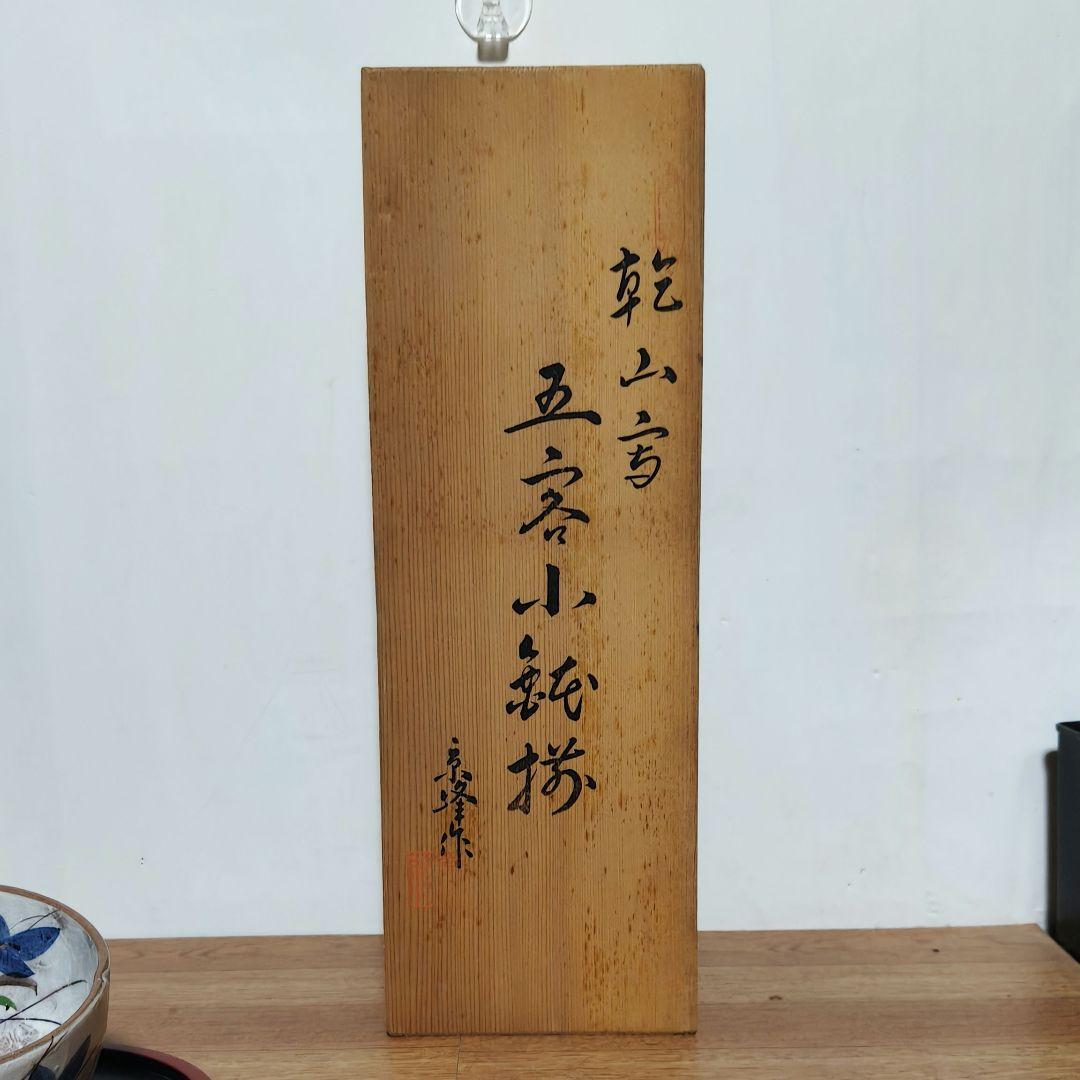 乾山写
五客小鉢揃
京峰作